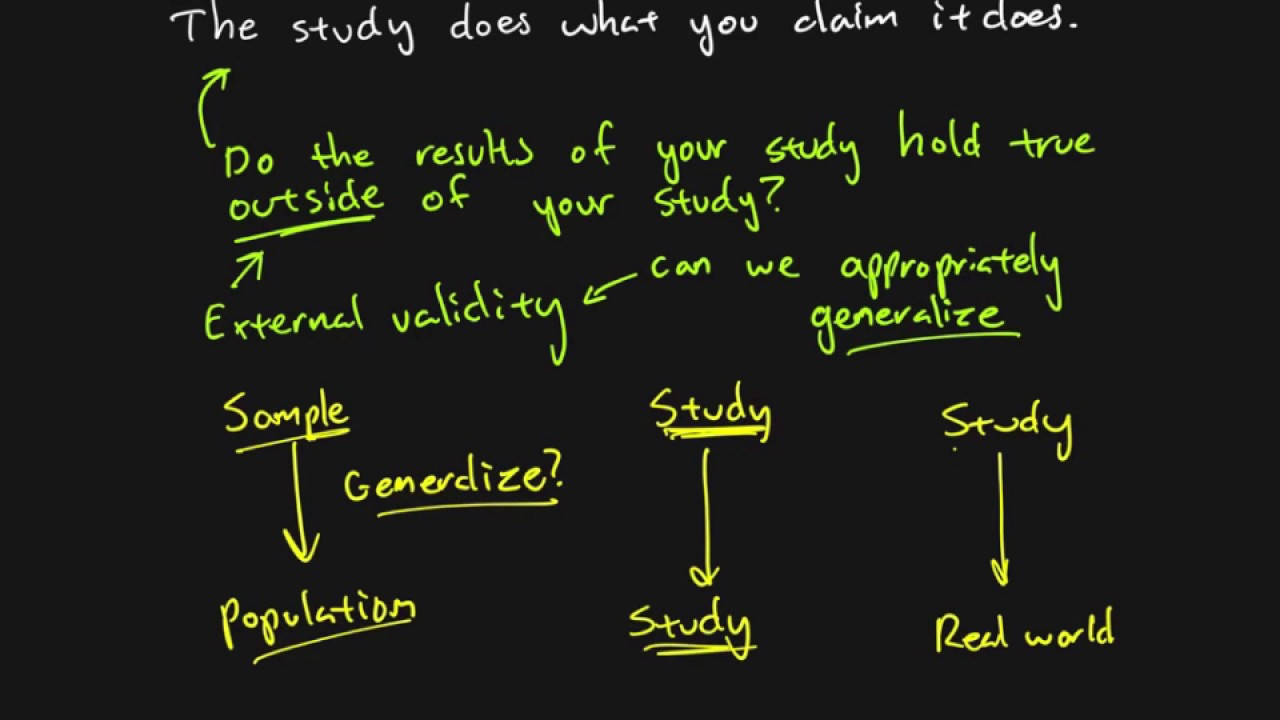 The study does what you claim it does.
Do the results of your study hold true
outside of your study?
can we appropriately
generalize
External validity
Sample
Generalize?
Population
Study
Study
Study
Real world